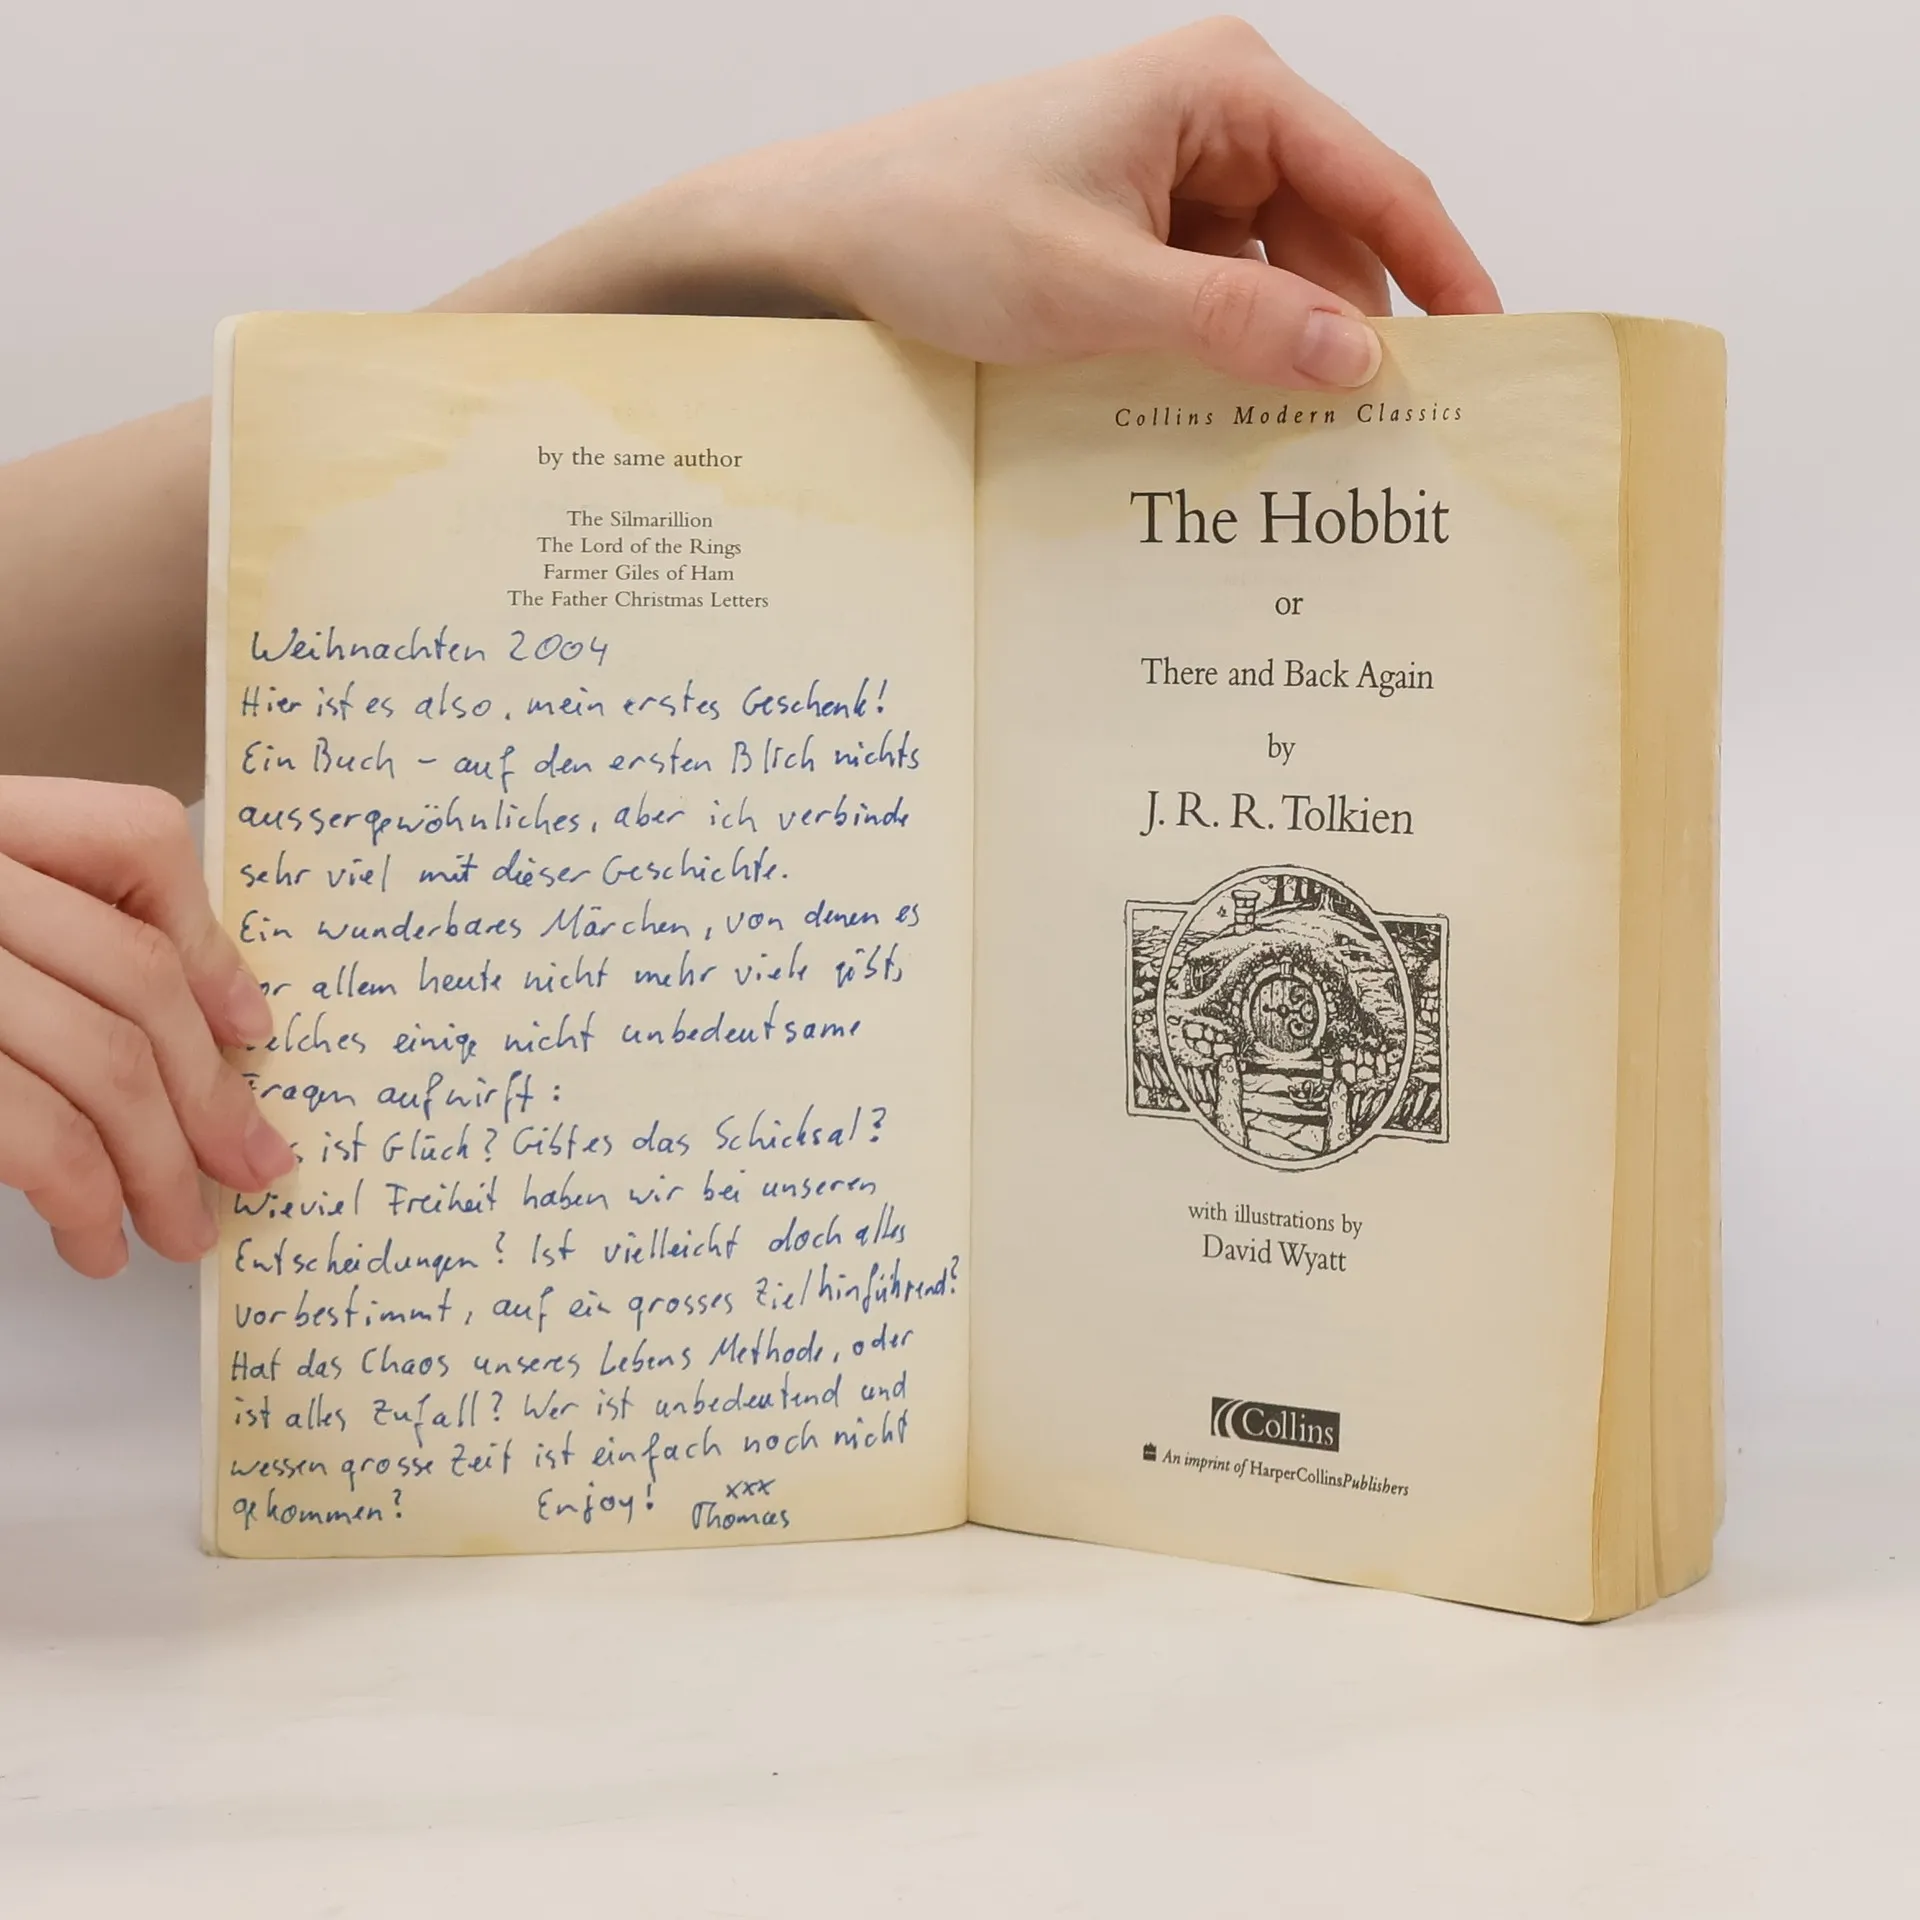 by the same author
The Silmarillion
The Lord of the Rings
Farmer Giles of Ham
The Father Christmas Letters
Weihnachten 2004
Hier ist es also, mein erstes Geschenk!
Ein Buch – auf den ersten Blick nichts
aussergewöhnliches, aber ich verbinde
sehr viel mit dieser Geschichte.
Ein wunderbares Märchen, von denen es
or allem heute nicht mehr viele gibt,
elches einige nicht unbedeutsame
Fragen aufwirft:
s ist Glück? Gibt es das Schicksal?
Wieviel Freiheit haben wir bei unseren
Entscheidungen? Ist vielleicht doch alles
vorbestimmt, auf ein grosses Ziel hinführend?
Hat das Chaos unseres Lebens Methode, oder
ist alles Zufall? Wer ist unbedeutend und
wessen grosse Zeit ist einfach noch nicht
gekommen? Enjoy! xxx
Thomas
Collins Modern Classics
The Hobbit
or
There and Back Again
by
J. R. R. Tolkien
with illustrations by
David Wyatt
Collins
An imprint of HarperCollinsPublishers